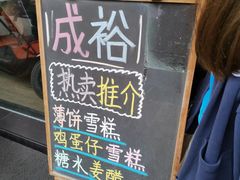 成裕
热卖推介
薄饼雪糕
鸡蛋仔雪糕
糖水姜醋